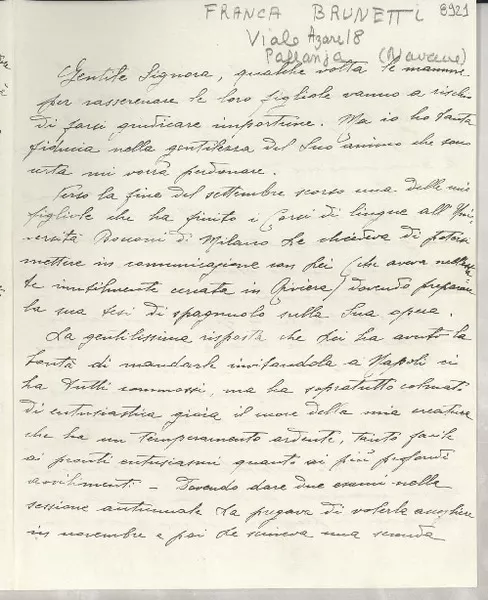 FRANCA BRUNETTI 8921
Viale Azari 8
Pallanza (Novara)
Gentile Signora, qualche volta le mamme
per rasserenare le loro figliole vanno a rischio
di farsi giudicare importune. Ma io ho tanta
fiducia nella gentilezza del Suo animo che son
certa mi vorrà perdonare.
Verso la fine del settembre scorso una delle mie
figliole che ha finito i Corsi di lingue all'Uni-
versità Bocconi di Milano Le chiedeva di potersi
mettere in comunicazione con Lei (che aveva nell'estate
inutilmente cercata in Riviera) dovendo preparare
la sua tesi di spagnuolo sulla Sua opera.
La gentilissima risposta che Lei ha avuto la
bontà di mandarle invitandola a Napoli ci
ha tutti commossi, ma ha sopratutto colmato
di entusiastica gioia il cuore della mia creatura
che ha un temperamento ardente, tanto facile
ai pronti entusiasmi quanto ai più profondi
avvilimenti - Dovendo dare due esami nella
sessione autunnale La pregava di volerla accogliere
in novembre e poi Le scriveva una seconda